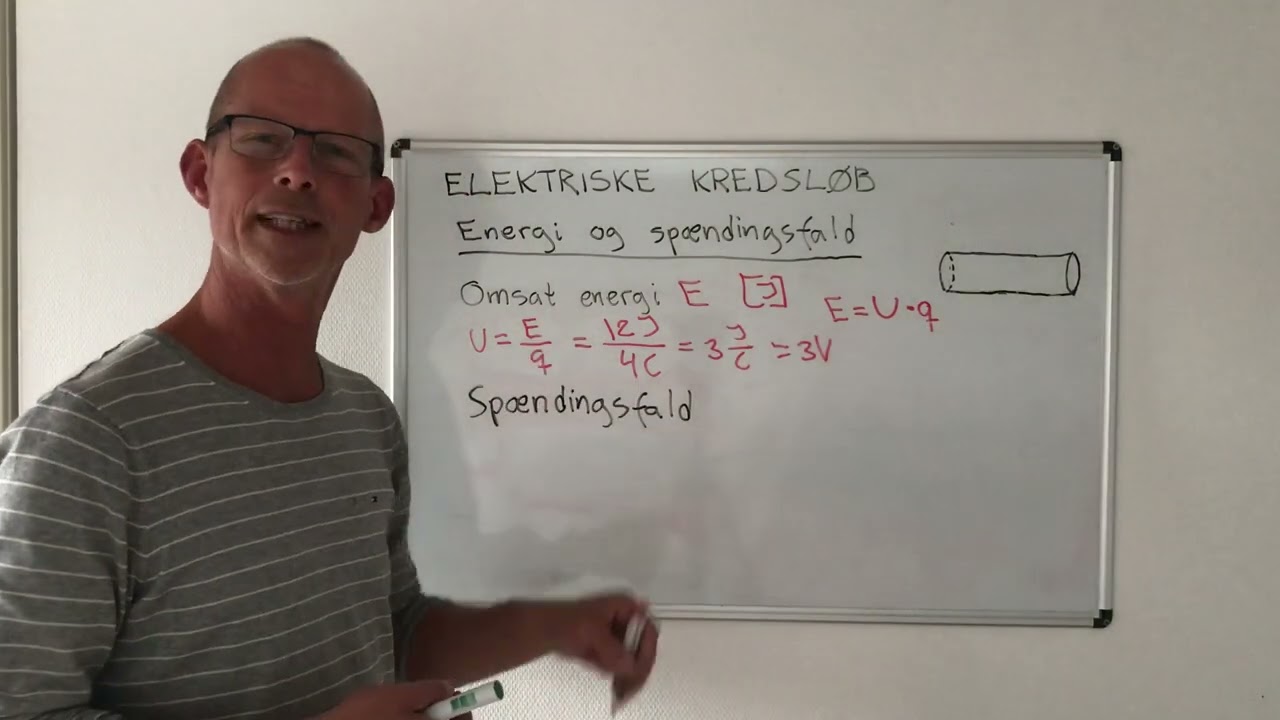 ELEKTRISKE KREDSLØB
Energi og spændingsfald
Omsat energi E [J] E = U · q
U = E/q = 12J/4C = 3 J/C = 3V
Spændingsfald